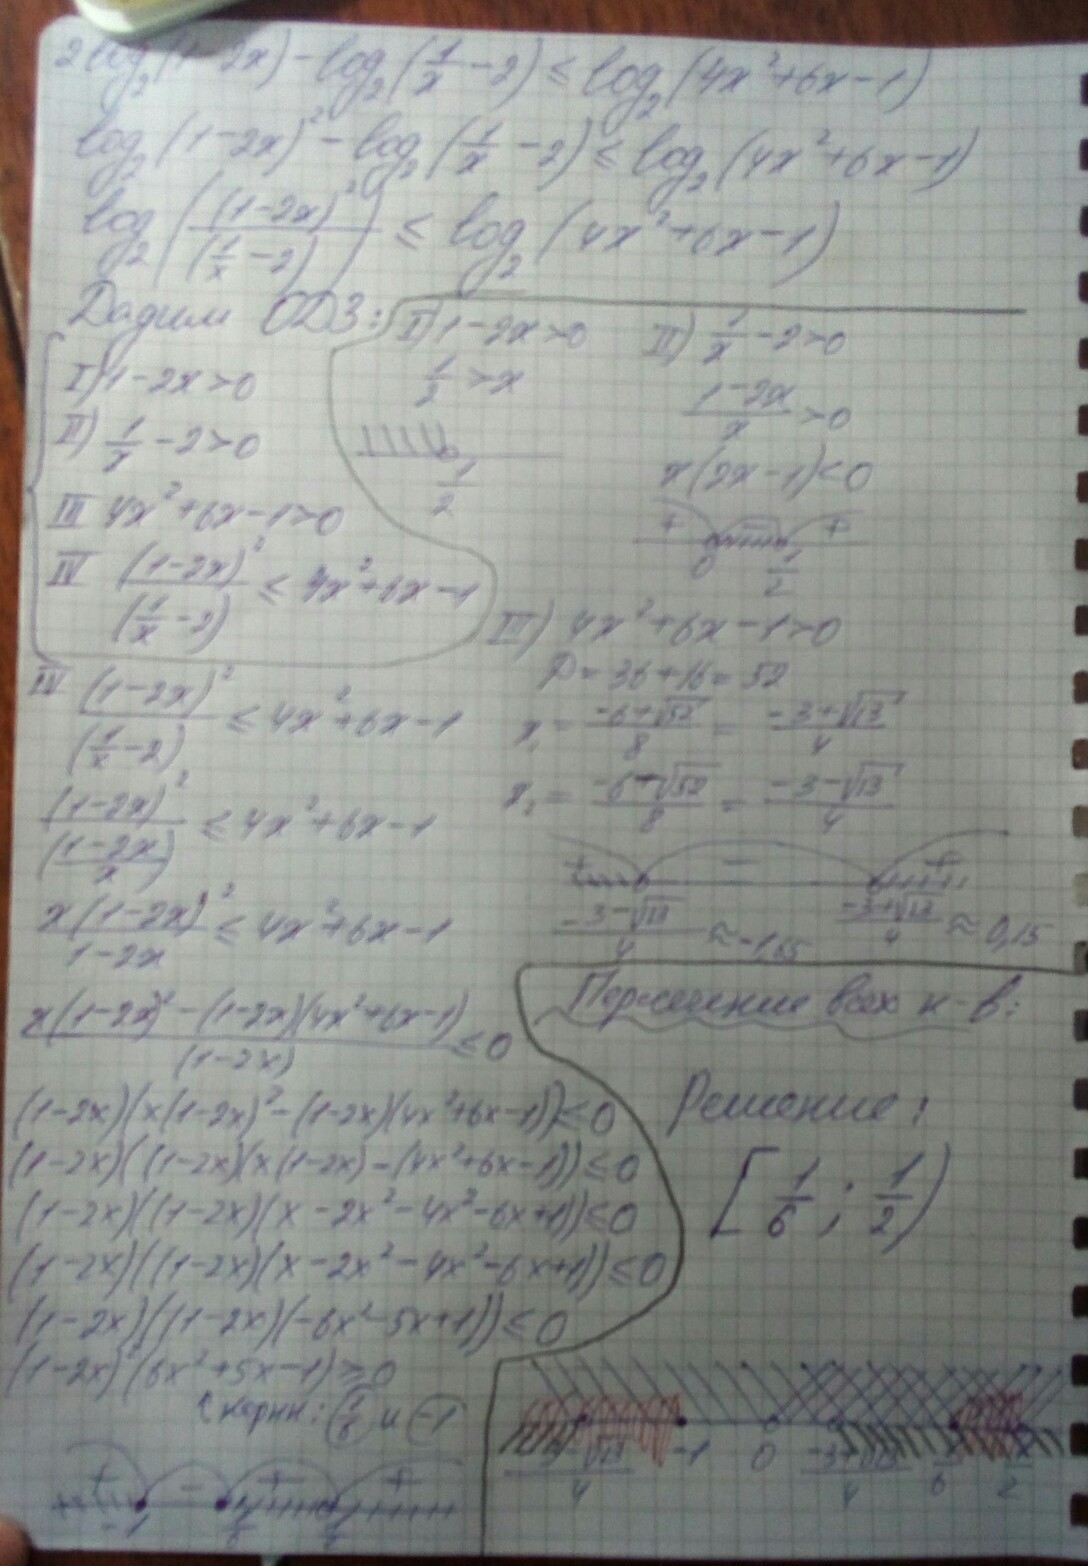 2log₂(1-2x)-log₂(1/x-2)≤log₂(4x²+6x-1)
log₂(1-2x)²-log₂(1/x-2)≤log₂(4x²+6x-1)
log₂((1-2x)²/(1/x-2))≤log₂(4x²+6x-1)
ОДЗ:
I) 1-2x>0
II) 1/x-2>0
III 4x²+6x-1>0
IV (1-2x)²/(1/x-2)≤4x²+6x-1
I) 1-2x>0
1/2>x
1/2
II) 1/x-2>0
(1-2x)/x>0
x(2x-1)<0
+ - +
0 1/2
III) 4x²+6x-1>0
D=36+16=52
x₁=(-6+√52)/8=(-3+√13)/4
x₂=(-6-√52)/8=(-3-√13)/4
+ - +
(-3-√13)/4≈-1,65 (-3+√13)/4≈0,15
IV (1-2x)²/(1/x-2)≤4x²+6x-1
(1-2x)²/((1-2x)/x)≤4x²+6x-1
x(1-2x)²/(1-2x)≤4x²+6x-1
(x(1-2x)²-(1-2x)(4x²+6x-1))/(1-2x)≤0
(1-2x)(x(1-2x)²-(1-2x)(4x²+6x-1))≤0
(1-2x)((1-2x)(x(1-2x)-(4x²+6x-1)))≤0
(1-2x)((1-2x)(x-2x²-4x²-6x+1))≤0
(1-2x)((1-2x)(x-2x²-4x²-6x+1))≤0
(1-2x)((1-2x)(-6x²-5x+1))≤0
(1-2x)²(6x²+5x-1)≥0
корни: 1/6 и -1
+ - + +
-1 1/6 1/2
всех н-в:
Решение:
[1/6; 1/2)
(-3-√13)/4 -1 0 (-3+√13)/4 1/6 1/2